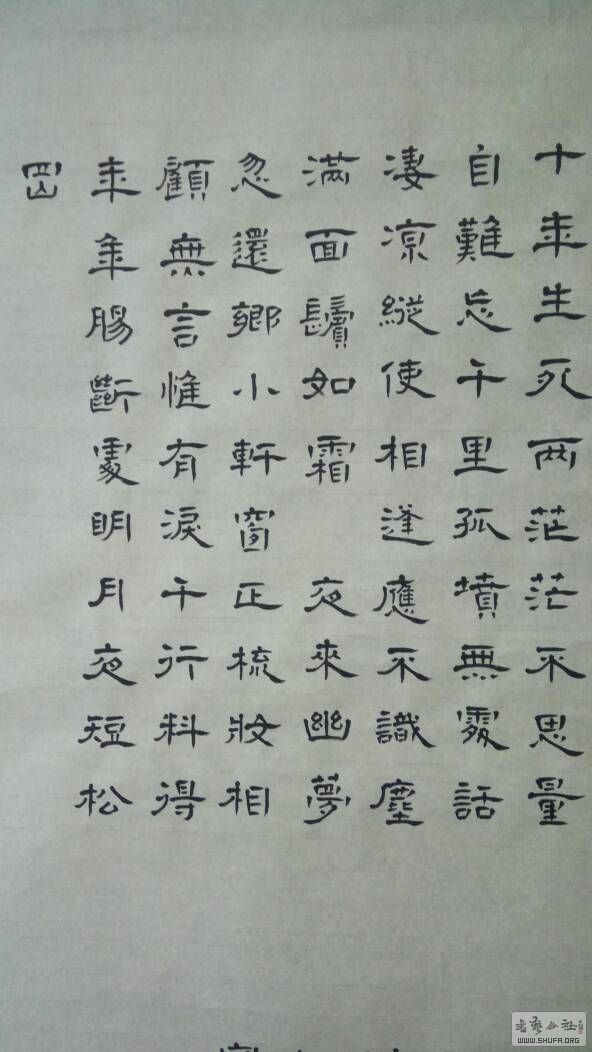 十年生死两茫茫不思量
自難忘千里孤墳無處話
淒涼縱使相逢應不識塵
滿面鬢如霜 夜來幽夢
忽還鄉小軒窗正梳妝相
顧無言惟有淚千行料得
年年腸斷處明月夜短松
岡
書藝公社
WWW.SHUFA.ORG